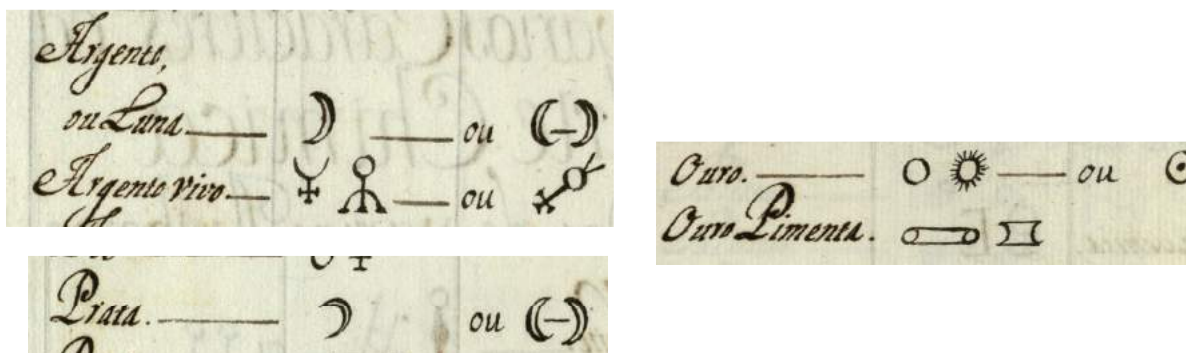 Argento,
ou Luna ou
Argento vivo ou
Prata. ou
Ouro. ou
Ouro Pimenta.